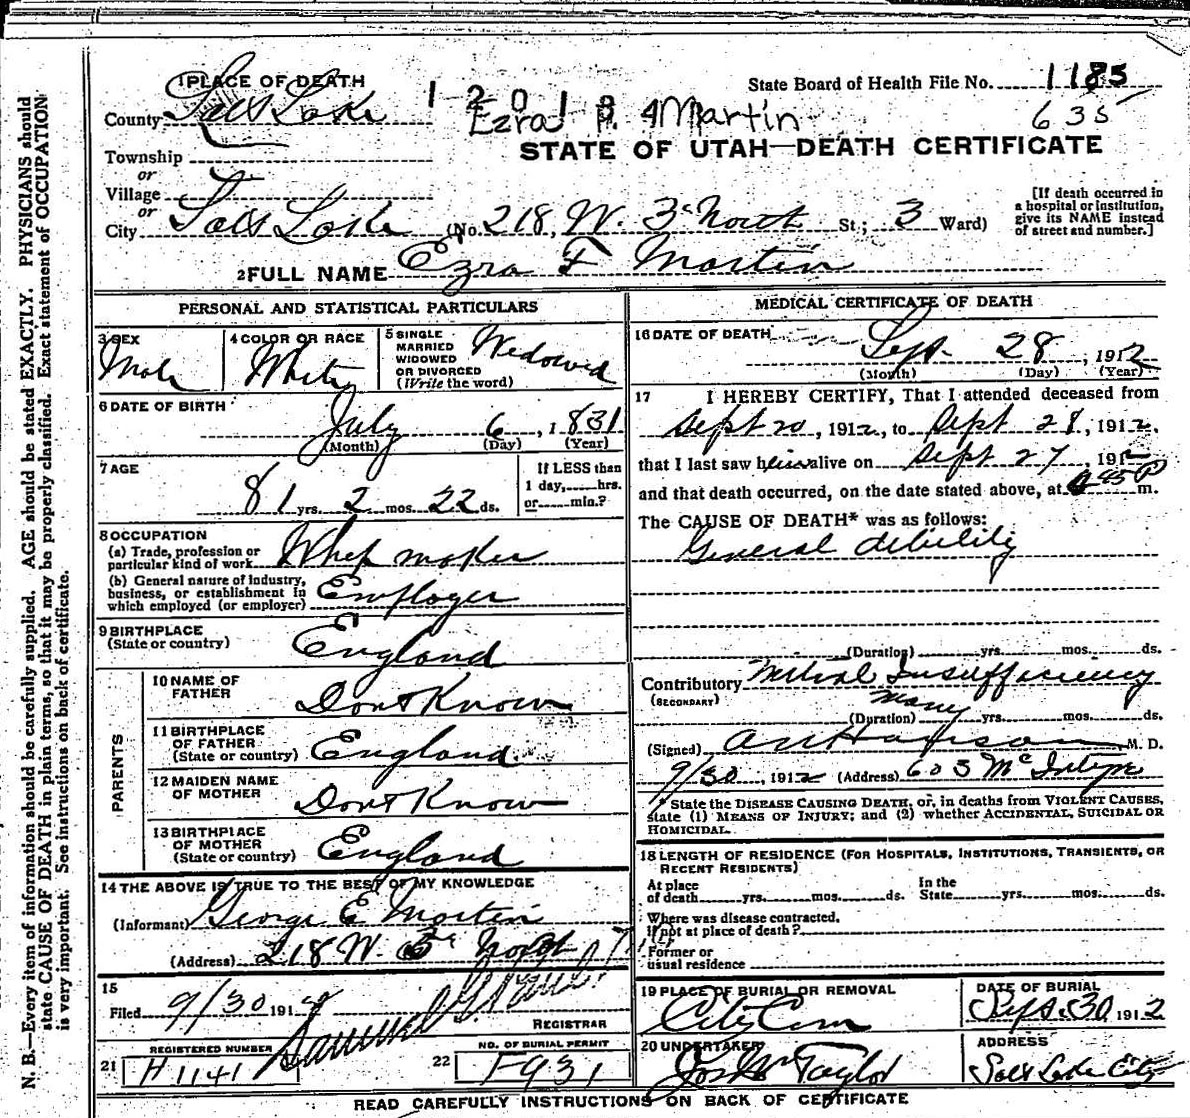 1 PLACE OF DEATH
State Board of Health File No. 1185
635
County Salt Lake
Ezra
Martin
STATE OF UTAH—DEATH CERTIFICATE
Township
or
Village
or
City Salt Lake (No. 218, W. 3d North St.; 3 Ward)
[If death occurred in
a hospital or institution,
give its NAME instead
of street and number.]
2 FULL NAME Ezra F Martin
PERSONAL AND STATISTICAL PARTICULARS
3 SEX
Male
4 COLOR OR RACE
White
5 SINGLE
MARRIED
WIDOWED
OR DIVORCED
(Write the word)
Widowed
6 DATE OF BIRTH
July 6, 1831
(Month) (Day) (Year)
7 AGE
81 yrs. 2 mos. 22 ds.
If LESS than
1 day, hrs.
or min.?
8 OCCUPATION
(a) Trade, profession or
particular kind of work Whip maker
(b) General nature of industry,
business, or establishment in
which employed (or employer) Employer
9 BIRTHPLACE
(State or country) England
PARENTS
10 NAME OF
FATHER Dont Know
11 BIRTHPLACE
OF FATHER
(State or country) England
12 MAIDEN NAME
OF MOTHER Dont Know
13 BIRTHPLACE
OF MOTHER
(State or country) England
14 THE ABOVE IS TRUE TO THE BEST OF MY KNOWLEDGE
(Informant) George E Martin
(Address) 218 W. 3d North
15
Filed 9/30 191
REGISTRAR
REGISTERED NUMBER
21 H1141
NO. OF BURIAL PERMIT
22 F931
MEDICAL CERTIFICATE OF DEATH
16 DATE OF DEATH
Sept. 28, 1912
(Month) (Day) (Year)
17 I HEREBY CERTIFY, That I attended deceased from
Sept 20, 1912, to Sept 28, 1912,
that I last saw him alive on Sept 27, 1912
and that death occurred, on the date stated above, at 45 P m.
The CAUSE OF DEATH* was as follows:
General debility
(Duration) yrs. mos. ds.
Contributory Mitral Insufficiency
(SECONDARY)
many
(Duration) yrs. mos. ds.
(Signed) M. D.
9/30, 1912 (Address) 603 McIntyre
* State the DISEASE CAUSING DEATH, or, in deaths from VIOLENT CAUSES,
state (1) MEANS OF INJURY; and (2) whether ACCIDENTAL, SUICIDAL OR
HOMICIDAL.
18 LENGTH OF RESIDENCE (FOR HOSPITALS, INSTITUTIONS, TRANSIENTS, OR
RECENT RESIDENTS)
At place
of death yrs. mos. ds.
In the
State yrs. mos. ds.
Where was disease contracted.
if not at place of death?
Former or
usual residence
19 PLACE OF BURIAL OR REMOVAL
City Cem
DATE OF BURIAL
Sept. 30, 1912
20 UNDERTAKER
Jos Wm Taylor
ADDRESS
Salt Lake City
READ CAREFULLY INSTRUCTIONS ON BACK OF CERTIFICATE
N. B.—Every item of information should be carefully supplied. AGE should be stated EXACTLY. PHYSICIANS should
state CAUSE OF DEATH in plain terms, so that it may be properly classified. Exact statement of OCCUPATION
is very important. See instructions on back of certificate.